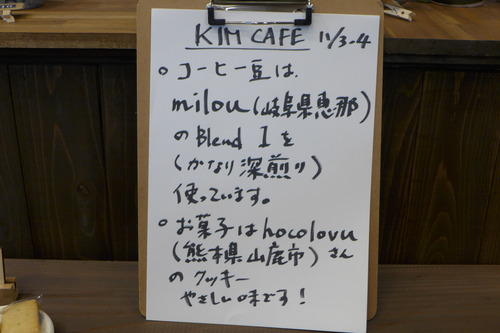 KIM CAFE 11/3-4
○ コーヒー豆は、
milou(岐阜県恵那)
の Blend 1 を
(かなり深煎り)
使っています。
○ お菓子は hocolovu
(熊本県山鹿市)さん
の クッキー
やさしい味です!